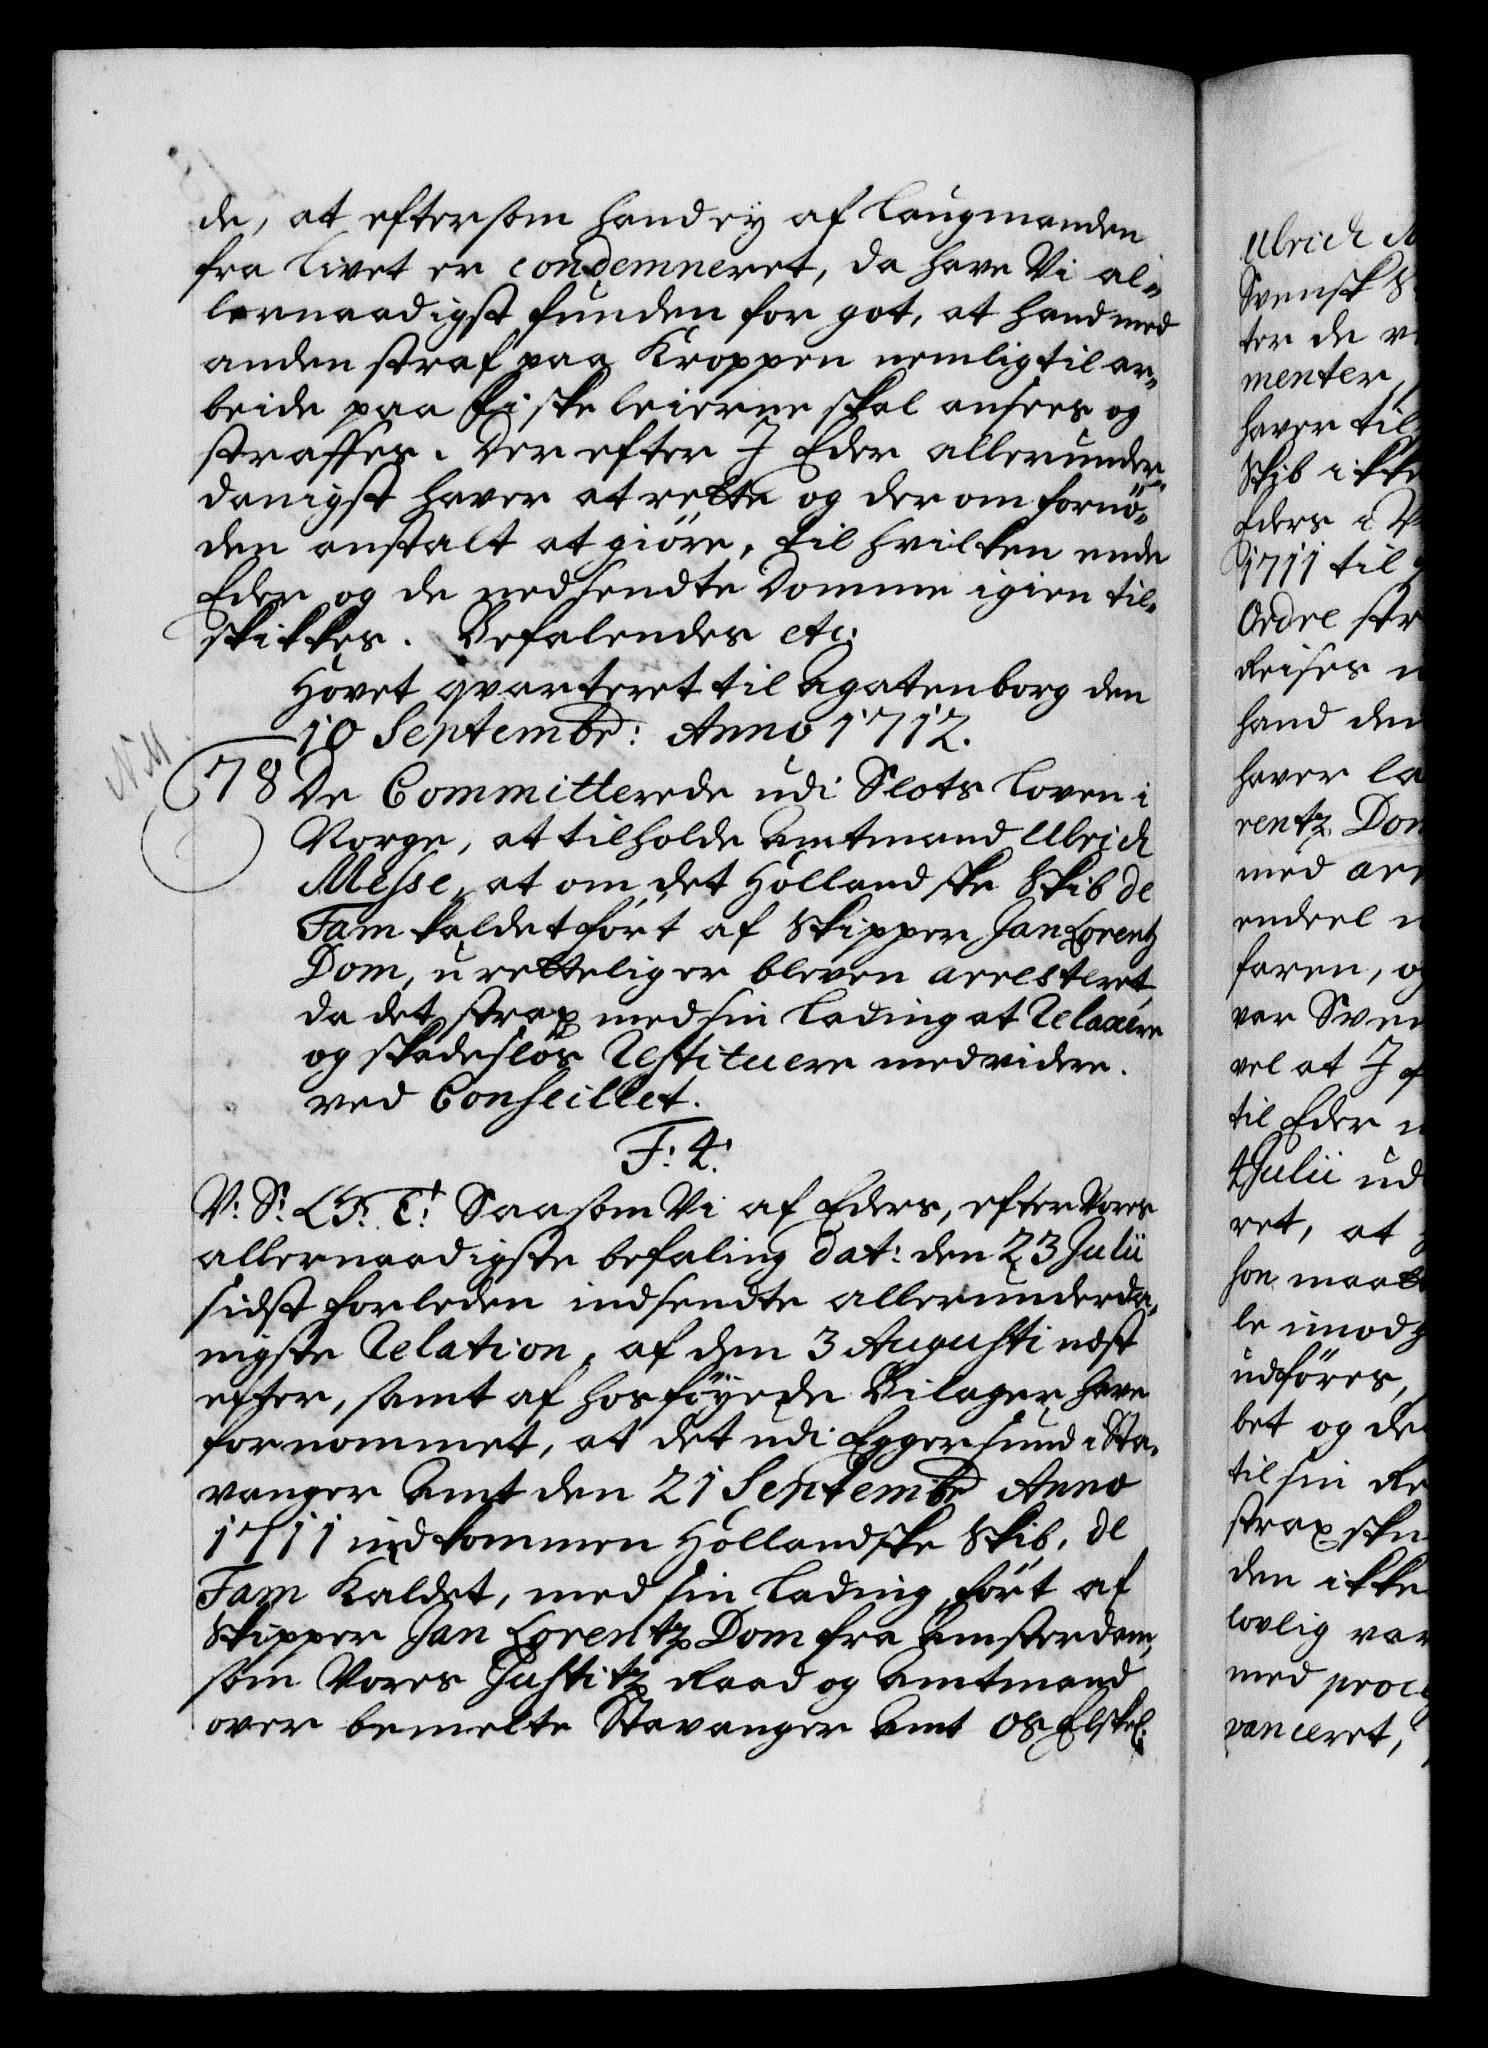 de, at eftersom hand ey af Laugmanden
fra Livet er condemneret, da have Vi al-
lernaadigst funden for got, at hand med
anden straf paa Kroppen nemlig til ar-
beide paa Fiskeleierne skal ansees og
straffes. Der efter I Eder allerunder-
danigst haver at rette og der om fornö-
den anstalt at giöre, til hvilken ende
Eder og de nedsendte Domme igien til-
skikkes. Befalendes etc:
Hovet qvarteret til Agatenborg den
10 Septembr: Anno 1712.
78 De Committerede udi Slots Loven i
Norge, at tilholde Amtmand Ulrich
Messe, at om det Hollandske Skib de
Fam kaldet fört af Skipper Jan Lorentz
Dom, u retteligen bleven arresteret,
da det strax med sin Lading at Relaxere
og skadeslös Restituere med videre.
ved Conseillet.
F: 4:
V: S: L F: T: Saasom Vi af Eders, efter Vores
allernaadigste befaling dat: den 23 Julii
sidst forleden indsendte allerunderda-
nigste Relation, af den 3 Augusti næst
efter, samt af hosföyede Bilager have
fornommet, at det udi Eggersund i Sta-
vanger Amt den 21 Septembr Anno
1711 indkommen Hollandske Skib, de
Fam Kaldet, med sin Lading fört af
Skipper Jan Lorentz Dom fra Amsterdam,
som Vores Justitz Raad og Amtmand
over bemelte Stavanger Amt Os Elskel:
Ulrich
Svensk
ter de
menter,
haver til
Skib ikke
Eders i
1711 til
Ordre
Reises
hand den
haver
rentz Dom
med
endeel
faren,
var
vel at I
til Eder
4 Julii
ret, at
hen
le imod
udföres,
bet og
til sin
strax
den ikke
lovlig
med
vanceret,